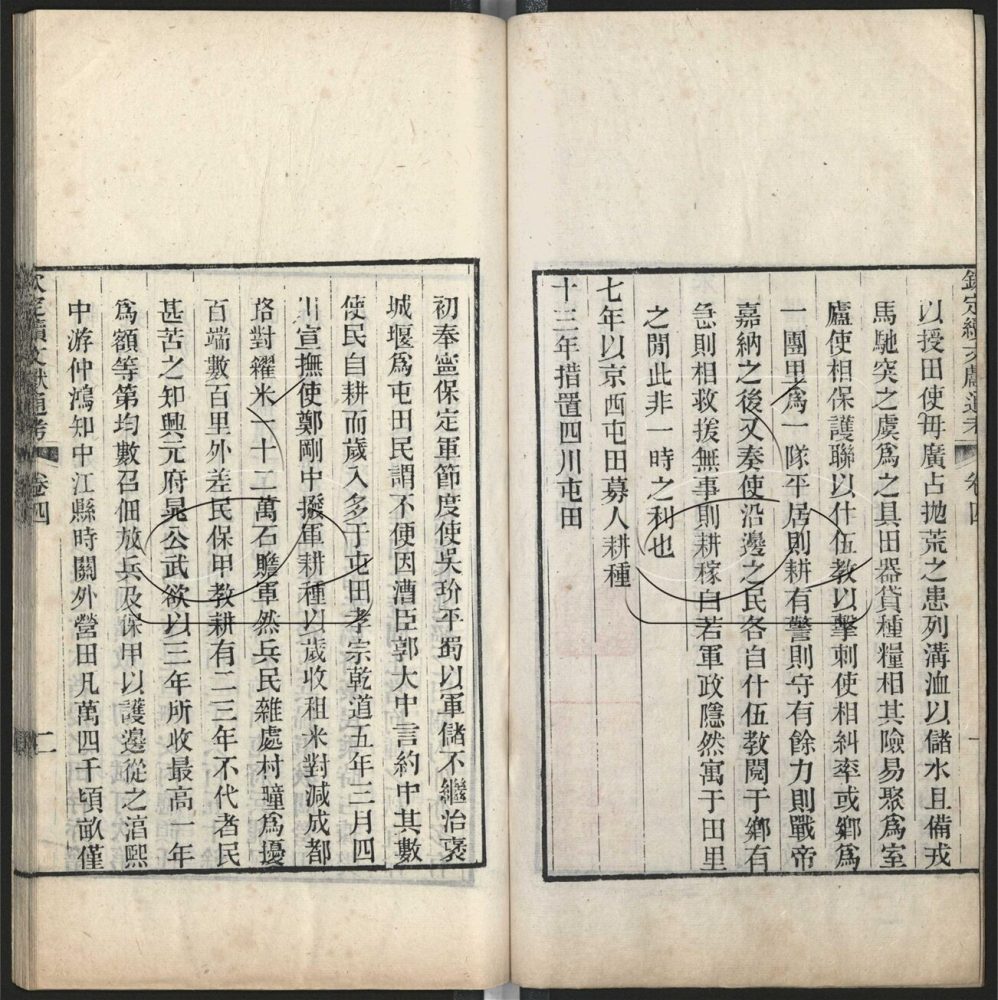 欽定續文獻通考 卷四 一
以授田使毋廣占拋荒之患列溝洫以儲水且備戎
馬馳突之虞爲之具田器貸種糧相其險易聚爲室
廬使相保護聯以什伍教以擊刺使相糾率或鄉爲
一團里爲一隊平居則耕有警則守有餘力則戰帝
嘉納之後又奏使沿邊之民各自什伍教閱于鄉有
急則相救援無事則耕稼自若軍政隱然寓于田里
之閒此非一時之利也
七年以京西屯田募人耕種
十三年措置四川屯田
初奉寧保定軍節度使吳玠平蜀以軍儲不繼治褒
城堰爲屯田民謂不便因漕臣郭大中言約中其數
使民自耕而歲入多于屯田孝宗乾道五年三月四
川宣撫使鄭剛中撥軍耕種以歲收租米對減成都
路對糴米一十二萬石贍軍然兵民雜處村疃爲擾
百端數百里外差民保甲教耕有二三年不代者民
甚苦之知興元府晁公武欲以三年所收最高一年
爲額等第均數召佃放兵及保甲以護邊從之淳熙
中游仲鴻知中江縣時關外營田凡萬四千頃畝僅
欽定續文獻通考 卷四 二